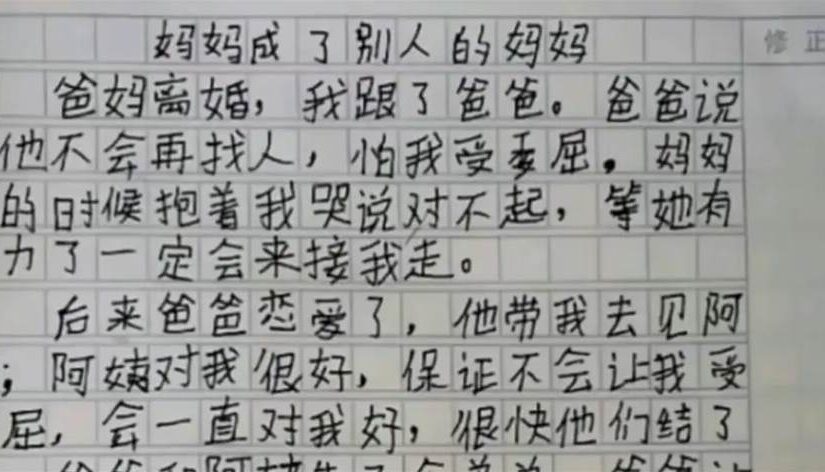 妈妈成了别人的妈妈
修正
爸妈离婚，我跟了爸爸。爸爸说
他不会再找人，怕我受委屈。妈妈
的时候抱着我哭说对不起，等她有
力了一定会来接我走。
后来爸爸恋爱了，他带我去见阿
；阿姨对我很好，保证不会让我受
屈，会一直对我好，很快他们结了